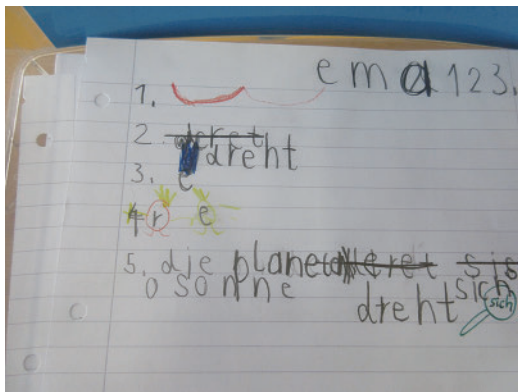 ema 123.
1.
2. deret
dreht
3. e
4 r e
5. dje planeten deret sis
o sonne dreht sich sich